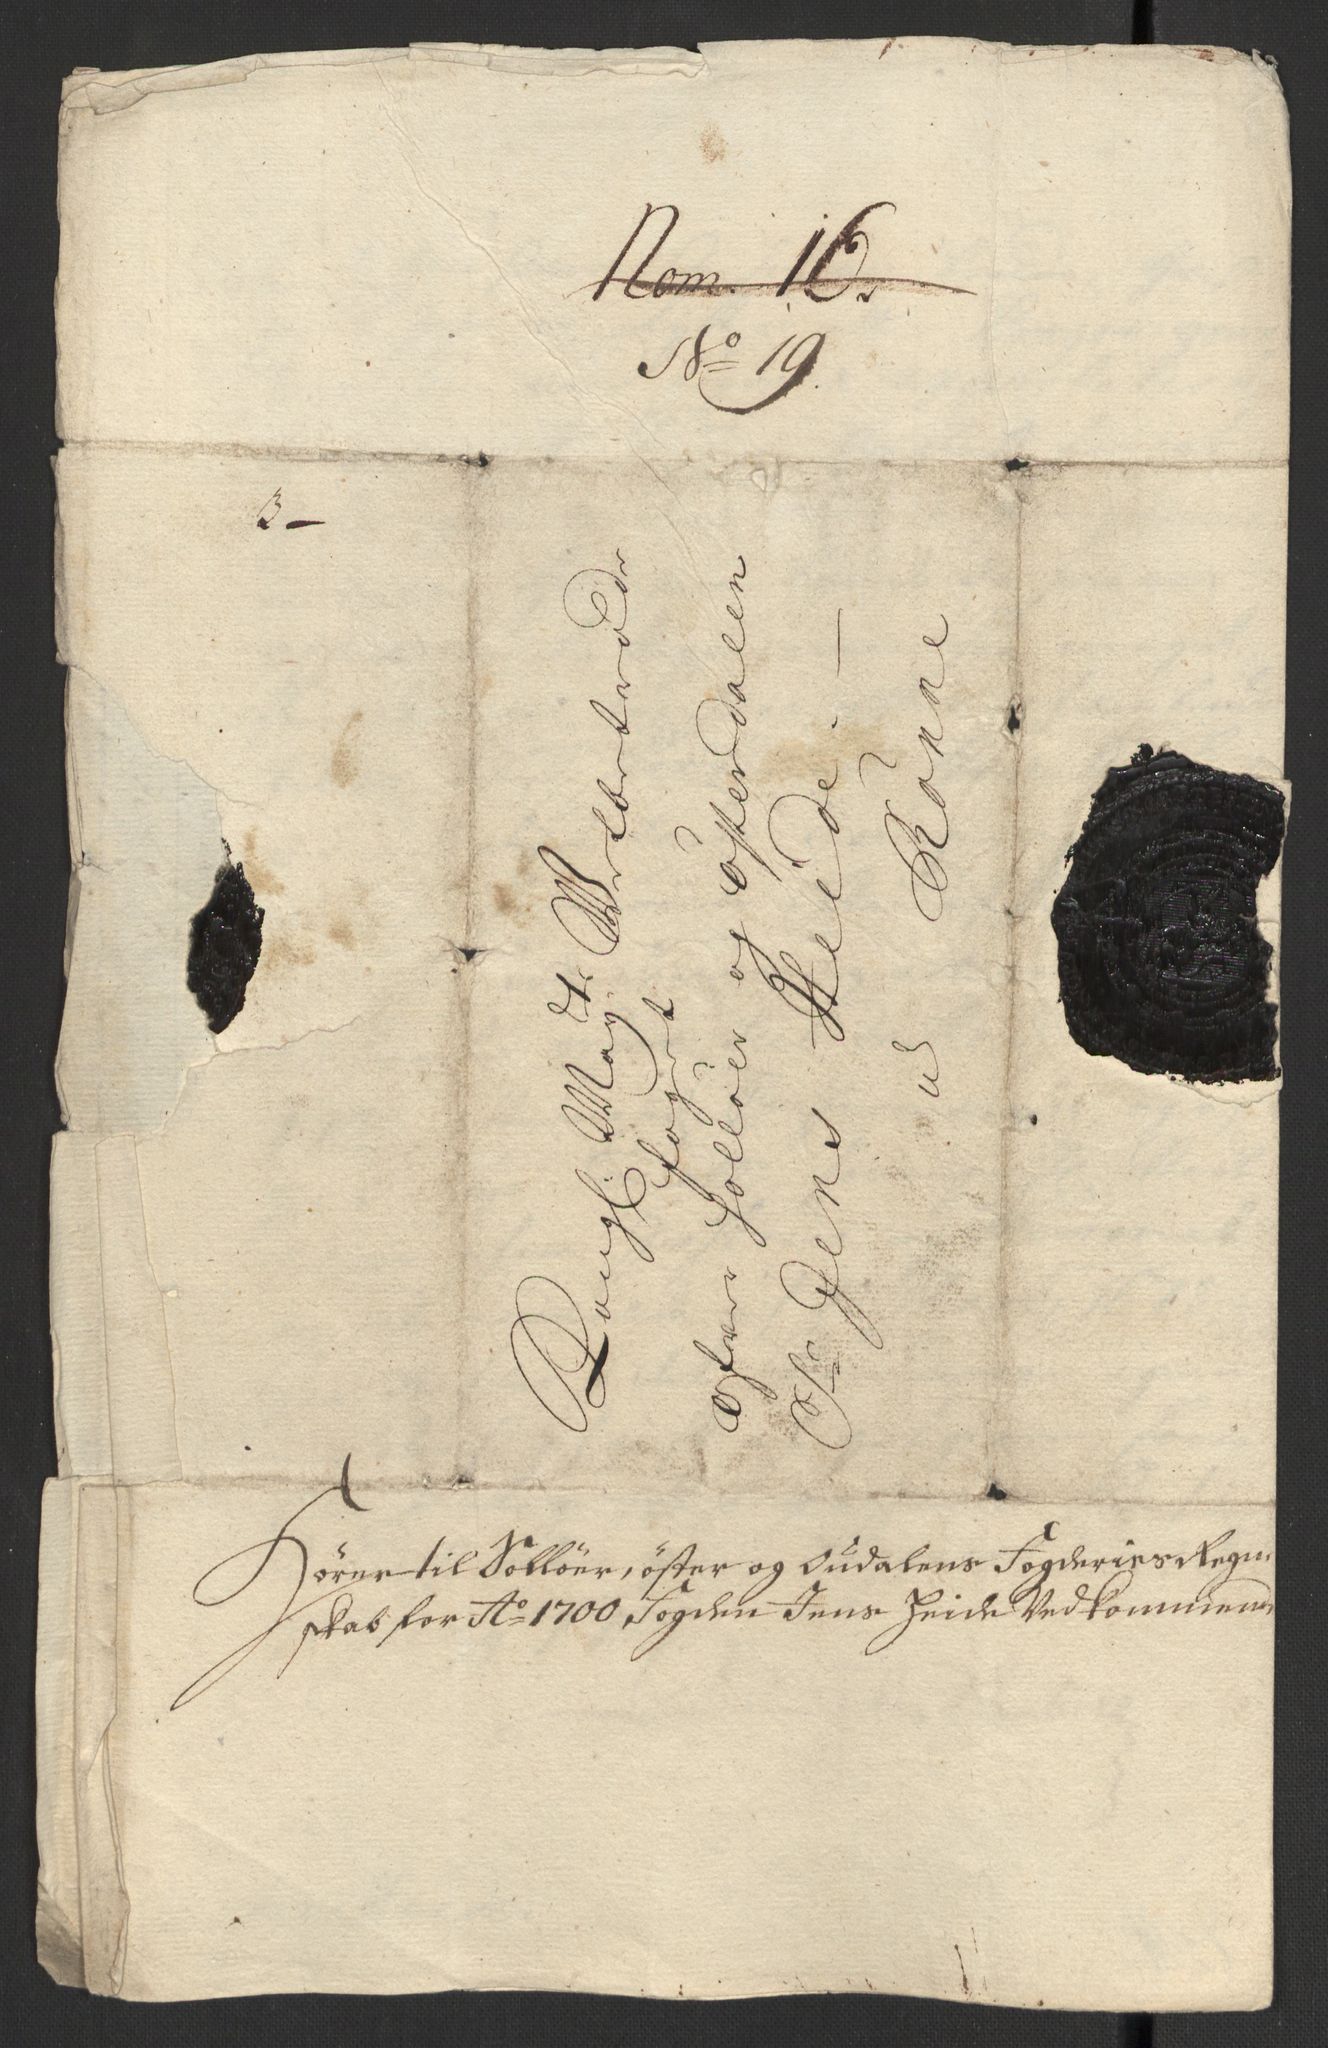 Nom. 16.
No 19
3 -
Kongl. Mayts. Welbetrode
fogvet
Ofver Solløer og Østerdalen
Sr Jens Heide. —
a Rønne
Hörer til Solløer, öster og Oudalens Fogderies Regn-
skab for Ao 1700, Fogden Jens Heide Vedkommende